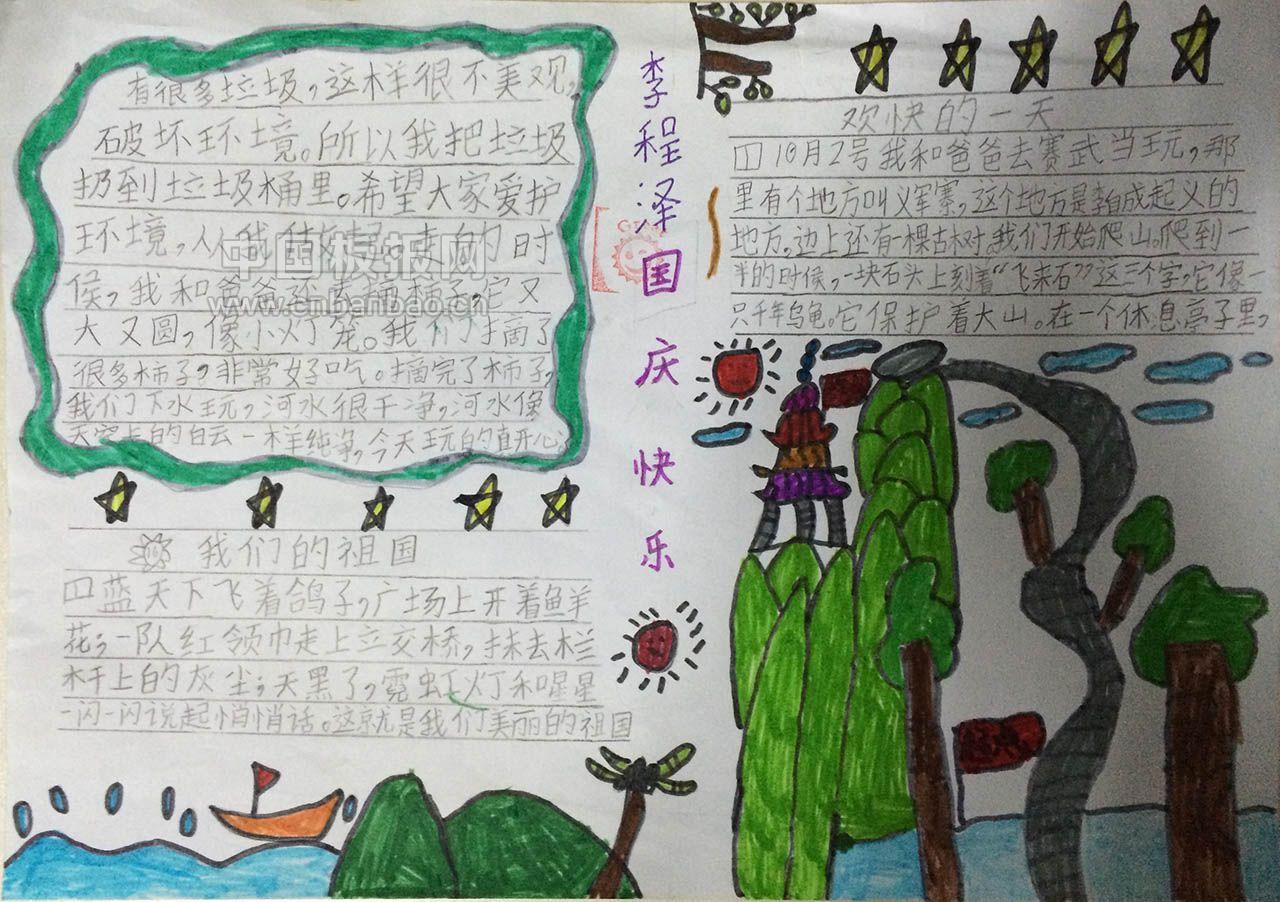 李程泽国庆快乐
欢快的一天
10月2号我和爸爸去赛武当玩，那
里有个地方叫义军寨，这个地方是李自成起义的
地方。边上还有一棵古树，我们开始爬山。爬到一
半的时候，一块石头上刻着“飞来石”这三个字，它像
只千年乌龟。它保护着大山。在一个休息亭子里，
有很多垃圾，这样很不美观，
破坏环境。所以我把垃圾
扔到垃圾桶里。希望大家爱护
环境，人人 的时
候，我和爸爸还去摘柿子，它又
大又圆，像小灯笼。我们摘了
很多柿子，非常好吃。摘完了柿子，
我们下水玩，河水很干净，河水像
天空上的白云一样纯净，今天玩的真开心
我们的祖国
蓝天下飞着鸽子，广场上开着鲜
花；一队红领巾走上立交桥，抹去栏
杆上的灰尘；天黑了，霓虹灯和星星
一闪一闪说起悄悄话。这就是我们美丽的祖国
中国板报网
www.cnbanbao.cn